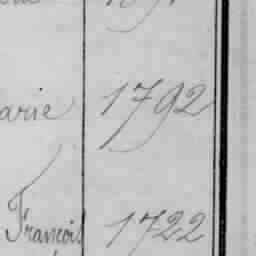 arie 1792
François 1722